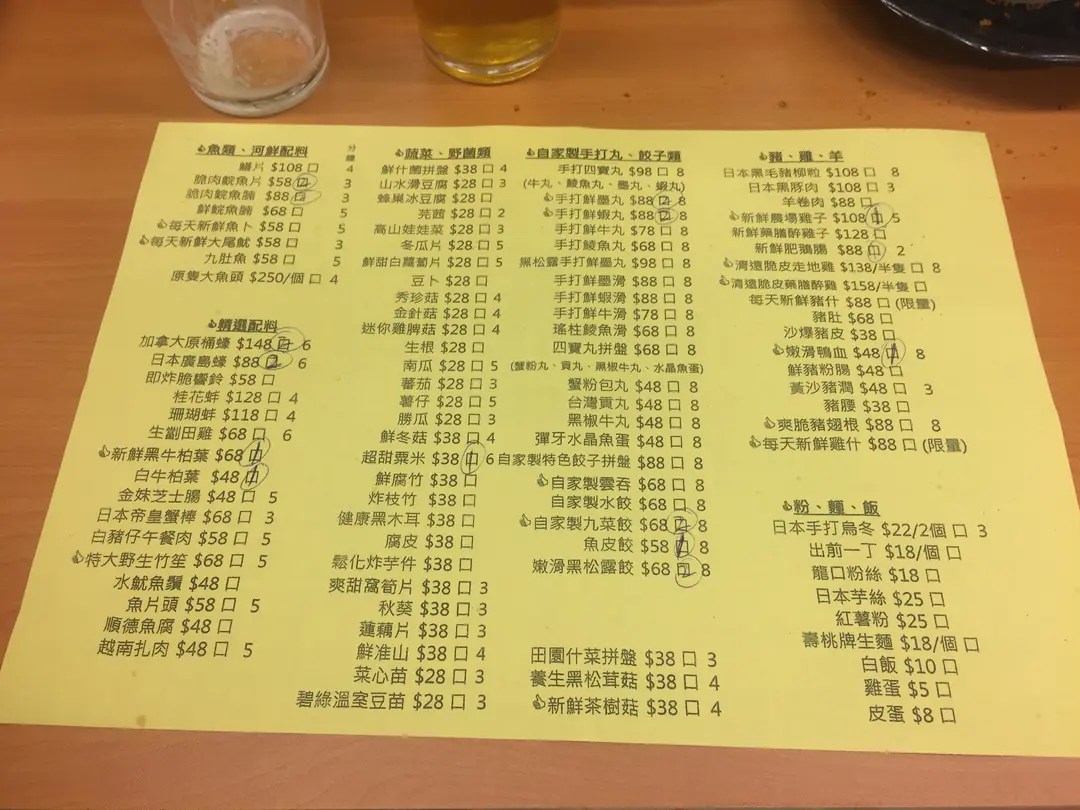 👍魚類、河鮮配料
分鐘
鱔片 $108 口 4
脆肉鯇魚片 $58 口 3
脆肉鯇魚腩 $88 口 3
鮮鯇魚腩 $68 口 5
👍每天新鮮魚卜 $58 口 5
👍每天新鮮大尾魷 $58 口 3
九肚魚 $58 口 5
原隻大魚頭 $250/個 口 4
👍精選配料
加拿大原桶蠔 $148 口 6
日本廣島蠔 $88 口 6
即炸脆響鈴 $58 口
桂花蚌 $128 口 4
珊瑚蚌 $118 口 4
生劏田雞 $68 口 6
👍新鮮黑牛柏葉 $68 口
白牛柏葉 $48 口
金妹芝士腸 $48 口 5
日本帝皇蟹棒 $68 口 3
白豬仔午餐肉 $58 口 5
👍特大野生竹笙 $68 口 5
水魷魚鬚 $48 口
魚片頭 $58 口 5
順德魚腐 $48 口
越南扎肉 $48 口 5
👍蔬菜、野菌類
鮮什菌拼盤 $38 口 4
山水滑豆腐 $28 口 3
蜂巢冰豆腐 $28 口
芫茜 $28 口 2
高山娃娃菜 $28 口 3
冬瓜片 $28 口 5
鮮甜白蘿蔔片 $28 口 5
豆卜 $28 口
秀珍菇 $28 口 4
金針菇 $28 口 4
迷你雞脾菇 $28 口 4
生根 $28 口
南瓜 $28 口 5
蕃茄 $28 口 3
薯仔 $28 口 5
勝瓜 $28 口 3
鮮冬菇 $38 口 4
超甜粟米 $38 口 6
鮮腐竹 $38 口
炸枝竹 $38 口
健康黑木耳 $38 口
腐皮 $38 口
鬆化炸芋件 $38 口
爽甜窩筍片 $38 口 3
秋葵 $38 口 3
蓮藕片 $38 口 3
鮮准山 $38 口 4
菜心苗 $28 口 3
碧綠溫室豆苗 $28 口 3
👍自家製手打丸、餃子類
手打四寶丸 $98 口 8
(牛丸、鯪魚丸、墨丸、蝦丸)
👍手打鮮墨丸 $88 口 8
👍手打鮮蝦丸 $88 口 8
手打鮮牛丸 $78 口 8
手打鯪魚丸 $68 口 8
黑松露手打鮮墨丸 $98 口 8
手打鮮墨滑 $88 口 8
手打鮮蝦滑 $88 口 8
手打鮮牛滑 $78 口 8
瑤柱鯪魚滑 $68 口 8
四寶丸拼盤 $68 口 8
(蟹粉丸、貢丸、黑椒牛丸、水晶魚蛋)
蟹粉包丸 $48 口 8
台灣貢丸 $48 口 8
黑椒牛丸 $48 口 8
彈牙水晶魚蛋 $48 口 8
自家製特色餃子拼盤 $88 口 8
👍自家製雲吞 $68 口 8
自家製水餃 $68 口 8
👍自家製九菜餃 $68 口 8
魚皮餃 $58 口 8
嫩滑黑松露餃 $68 口 8
田園什菜拼盤 $38 口 3
養生黑松茸菇 $38 口 4
👍新鮮茶樹菇 $38 口 4
👍豬、雞、羊
日本黑毛豬柳粒 $108 口 8
日本黑豚肉 $108 口 3
羊卷肉 $88 口
👍新鮮農場雞子 $108 口 5
新鮮藥膳醉雞子 $128 口
新鮮肥鵝腸 $88 口 2
👍清遠脆皮走地雞 $138/半隻 口 8
👍清遠脆皮藥膳醉雞 $158/半隻 口
每天新鮮豬什 $88 口 (限量)
豬肚 $68 口
沙爆豬皮 $38 口
👍嫩滑鴨血 $48 口 8
鮮豬粉腸 $48 口
黃沙豬潤 $48 口 3
豬腰 $38 口
👍爽脆豬翅根 $88 口 8
👍每天新鮮雞什 $88 口 (限量)
👍粉、麵、飯
日本手打烏冬 $22/2個 口 3
出前一丁 $18/個 口
龍口粉絲 $18 口
日本芋絲 $25 口
紅薯粉 $25 口
壽桃牌生麵 $18/個 口
白飯 $10 口
雞蛋 $5 口
皮蛋 $8 口